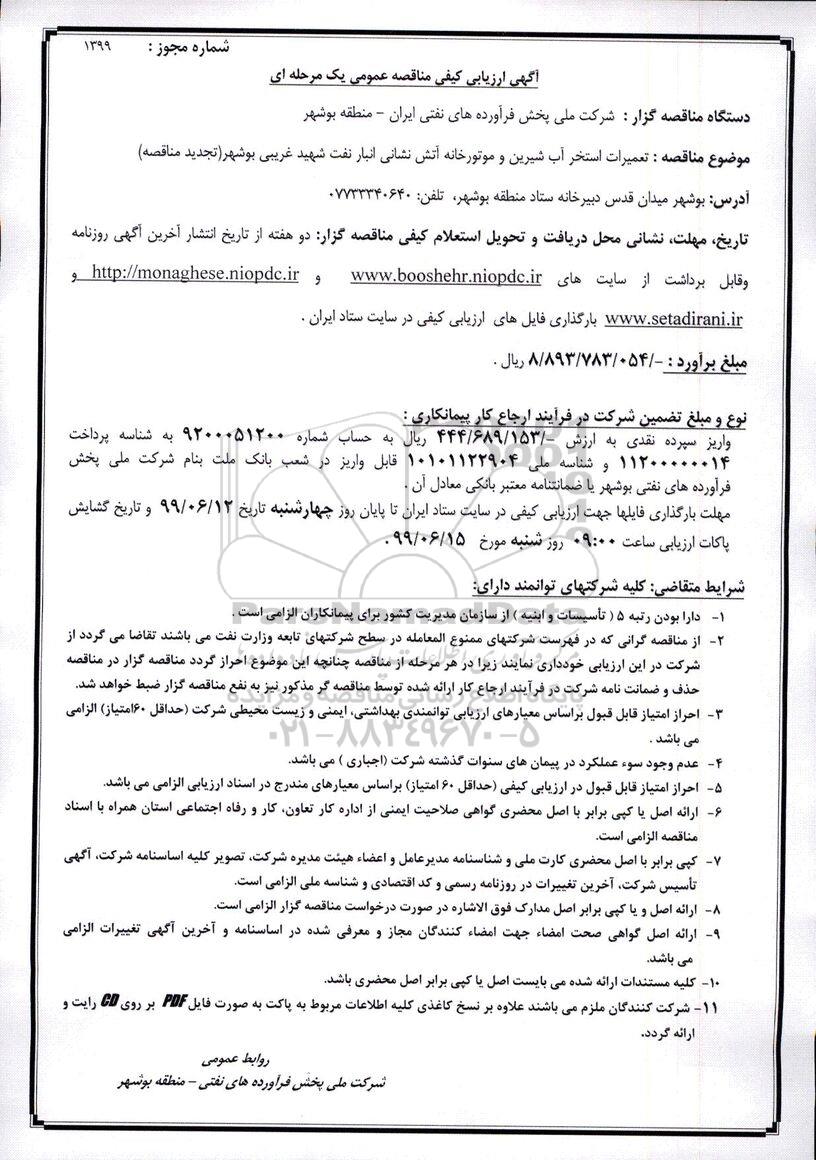 شماره مجوز : ۱۳۹۹
آگهی ارزیابی کیفی مناقصه عمومی یک مرحله ای
دستگاه مناقصه گزار : شرکت ملی پخش فرآورده های نفتی ایران – منطقه بوشهر
موضوع مناقصه : تعمیرات استخر آب شیرین و موتورخانه آتش نشانی انبار نفت شهید غریبی بوشهر(تجدید مناقصه)
آدرس: بوشهر میدان قدس دبیرخانه ستاد منطقه بوشهر، تلفن: ۰۷۷۳۳۳۴۰۶۴۰
تاریخ، مهلت، نشانی محل دریافت و تحویل استعلام کیفی مناقصه گزار: دو هفته از تاریخ انتشار آخرین آگهی روزنامه
وقابل برداشت از سایت های www.booshehr.niopdc.ir و http://monaghese.niopdc.ir و
www.setadirani.ir بارگذاری فایل های ارزیابی کیفی در سایت ستاد ایران .
مبلغ برآورد : -/۸/۸۹۳/۷۸۳/۰۵۴ ریال .
نوع و مبلغ تضمین شرکت در فرآیند ارجاع کار پیمانکاری :
واریز سپرده نقدی به ارزش -/۴۴۴/۶۸۹/۱۵۳ ریال به حساب شماره ۹۲۰۰۰۵۱۲۰۰ به شناسه پرداخت
۱۱۲۰۰۰۰۰۰۱۴ و شناسه ملی ۱۰۱۰۱۱۲۲۹۰۴ قابل واریز در شعب بانک ملت بنام شرکت ملی پخش
فرآورده های نفتی بوشهر یا ضمانتنامه معتبر بانکی معادل آن .
مهلت بارگذاری فایلها جهت ارزیابی کیفی در سایت ستاد ایران تا پایان روز چهارشنبه تاریخ ۹۹/۰۶/۱۲ و تاریخ گشایش
پاکات ارزیابی ساعت ۰۹:۰۰ روز شنبه مورخ ۹۹/۰۶/۱۵ .
شرایط متقاضی: کلیه شرکتهای توانمند دارای:
۱- دارا بودن رتبه ۵ ( تأسیسات و ابنیه ) از سازمان مدیریت کشور برای پیمانکاران الزامی است .
۲- از مناقصه گرانی که در فهرست شرکتهای ممنوع المعامله در سطح شرکتهای تابعه وزارت نفت می باشند تقاضا می گردد از
شرکت در این ارزیابی خودداری نمایند زیرا در هر مرحله از مناقصه چنانچه این موضوع احراز گردد مناقصه گزار در مناقصه
حذف و ضمانت نامه شرکت در فرآیند ارجاع کار ارائه شده توسط مناقصه گر مذکور نیز به نفع مناقصه گزار ضبط خواهد شد.
۳- احراز امتیاز قابل قبول براساس معیارهای ارزیابی توانمندی بهداشتی، ایمنی و زیست محیطی شرکت (حداقل ۶۰امتیاز) الزامی
می باشد .
۴- عدم وجود سوء عملکرد در پیمان های سنوات گذشته شرکت (اجباری ) می باشد.
۵- احراز امتیاز قابل قبول در ارزیابی کیفی (حداقل ۶۰ امتیاز) براساس معیارهای مندرج در اسناد ارزیابی الزامی می باشد.
۶- ارائه اصل یا کپی برابر با اصل محضری گواهی صلاحیت ایمنی از اداره کار تعاون، کار و رفاه اجتماعی استان همراه با اسناد
مناقصه الزامی است.
۷- کپی برابر با اصل محضری کارت ملی و شناسنامه مدیرعامل و اعضاء هیئت مدیره شرکت، تصویر کلیه اساسنامه شرکت، آگهی
تأسیس شرکت، آخرین تغییرات در روزنامه رسمی و کد اقتصادی و شناسه ملی الزامی است.
۸- ارائه اصل و یا کپی برابر اصل مدارک فوق الاشاره در صورت درخواست مناقصه گزار الزامی است.
۹- ارائه اصل گواهی صحت امضاء جهت امضاء کنندگان مجاز و معرفی شده در اساسنامه و آخرین آگهی تغییرات الزامی
می باشد.
۱۰- کلیه مستندات ارائه شده می بایست اصل یا کپی برابر اصل محضری باشد.
۱۱- شرکت کنندگان ملزم می باشند علاوه بر نسخ کاغذی کلیه اطلاعات مربوط به پاکت به صورت فایل PDF بر روی CD رایت و
ارائه گردد.
روابط عمومی
شرکت ملی پخش فرآورده های نفتی – منطقه بوشهر
ParsNamadData
پایگاه اطلاع رسانی مناقصه و مزایده
۰۲۱-۸۸۳۴۹۶۷۰-۵